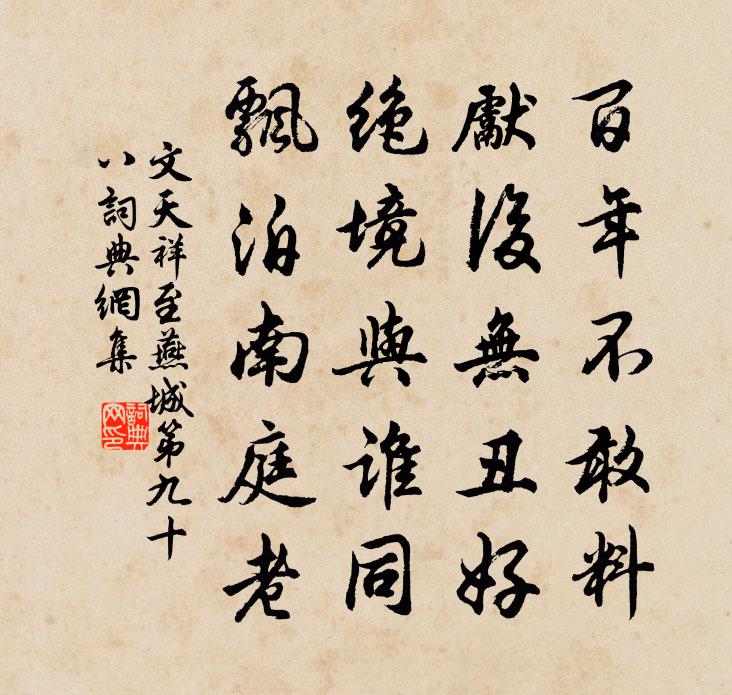 百年不敢料
獻後無丑好
絶境與誰同
飄泊南庭老
文天祥至燕城第九十
八詞典網集
詞典网印